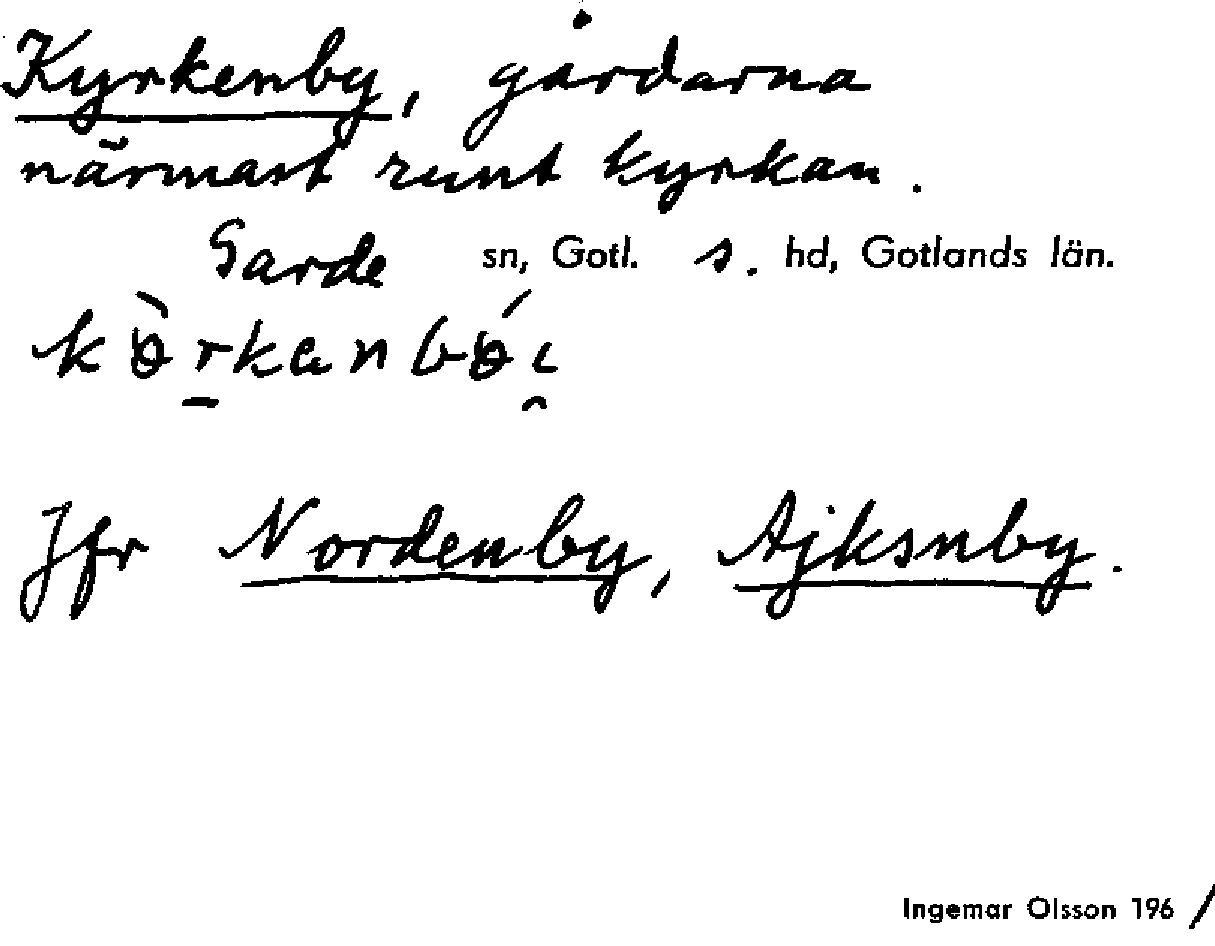 Kyrkenby, gårdarna
närmast runt kyrkan.
Garde sn, Gotl. s. hd, Gotlands län.
Jfr Nordenby, Ajksnby.
Ingemar Olsson 196/